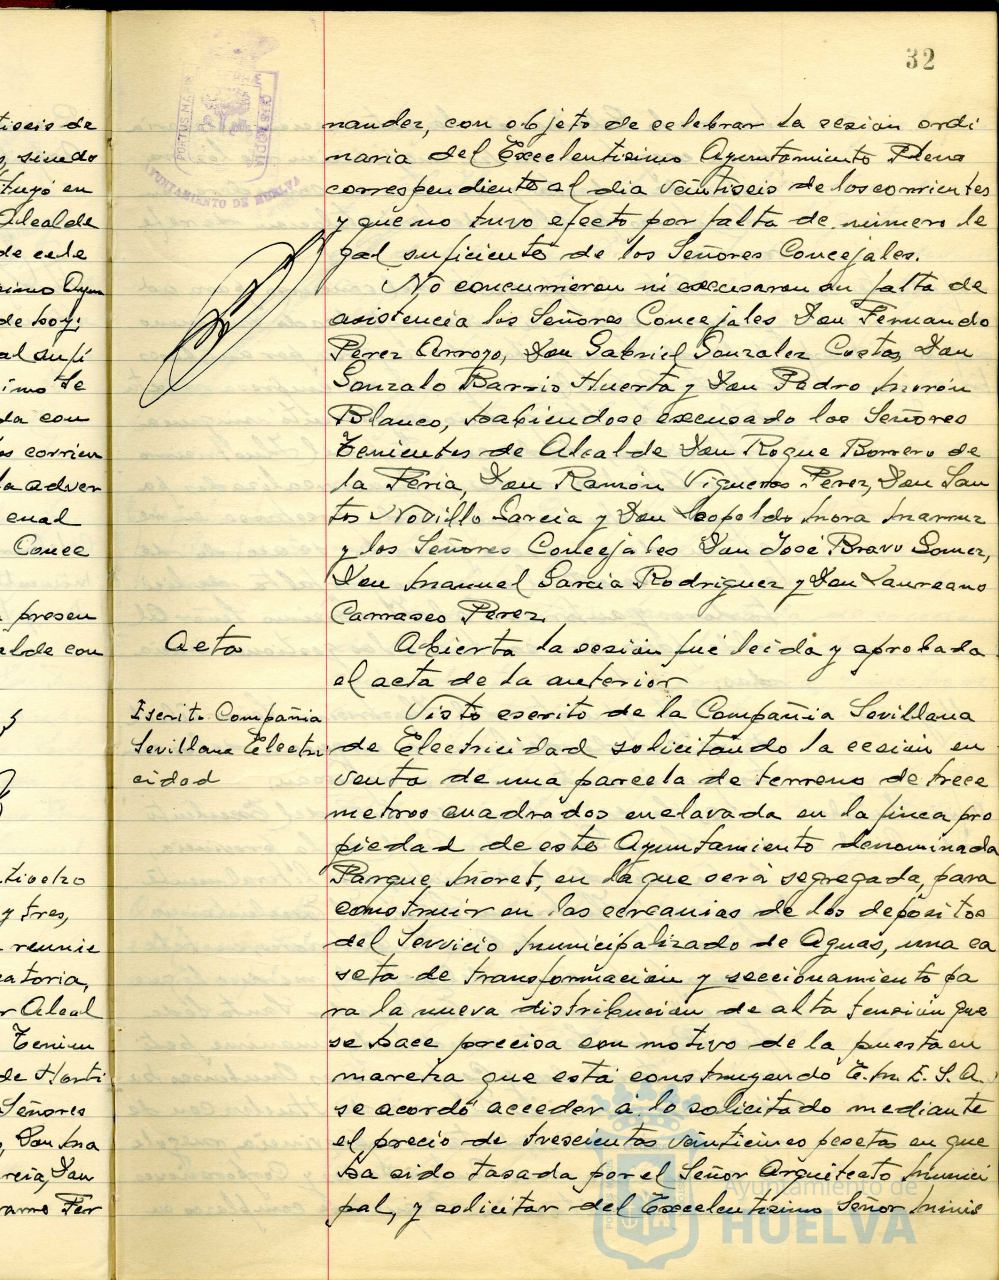 32
tiseis de
, siendo
tuyó en
Alcalde
de cele
simo Ayun
de hoy:
al sufi
simo Se
da con
os corrien
la adver
cual
Conce
presen
alde con
y tres,
reunie
catoria,
r Alcal
Tenien
de Horti
Señores
, Don Ma
rcia, Don
ramo Fer
PORTUS MARIS
AYUNTAMIENTO DE HUELVA
nandez, con objeto de celebrar la sesión ordi
naria del Excelentisimo Ayuntamiento Pleno
correspondiente al dia veintiseis de los corrientes
y que no tuvo efecto por falta de número le
gal suficiente de los Señores Concejales.
No concurrieron ni excusaron su falta de
asistencia los Señores Concejales Don Fernando
Perez Arroyo, Don Gabriel Gonzalez Costas, Don
Gonzalo Barrio Huerta y Don Pedro Morón
Blanco, habiendose excusado los Señores
Tenientes de Alcalde Don Roque Borrero de
la Feria, Don Ramón Vigueras Perez, Don San
tos Novillo Garcia y Don Leopoldo Mora
y los Señores Concejales Don José Bravo Gomez,
Don Manuel Garcia Rodriguez y Don Laureano
Carrasco Perez.
Acta
Abierta la sesión fué leida y aprobada
el acta de la anterior
Escrito Compañia
Sevillana Electri
cidad
Visto escrito de la Compañia Sevillana
de Electricidad solicitando la cesión en
venta de una parcela de terreno de trece
metros cuadrados enclavada en la finca pro
piedad de este Ayuntamiento denominada
Parque Moret, en la que será segregada, para
construir en las cercanias de los depósitos
del Servicio Municipalizado de Aguas, una ca
seta de transformación y seccionamiento pa
ra la nueva distribución de alta tensión que
se hace precisa con motivo de la puesta en
marcha que está construyendo E.M.E.S.A.
se acordó acceder á lo solicitado mediante
el precio de trescientas veinticinco pesetas en que
ha sido tasada por el Señor Arquitecto Munici
pal, y solicitar del Excelentisimo Señor Minis
Ayuntamiento de
HUELVA